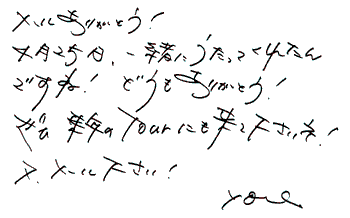 メールありがとう!
7月25日、一緒にうたってくれたん
ですね! どうもありがとう!
ぜひ 来年の Tourにも 来て下さいネ!
又、メール下さい!